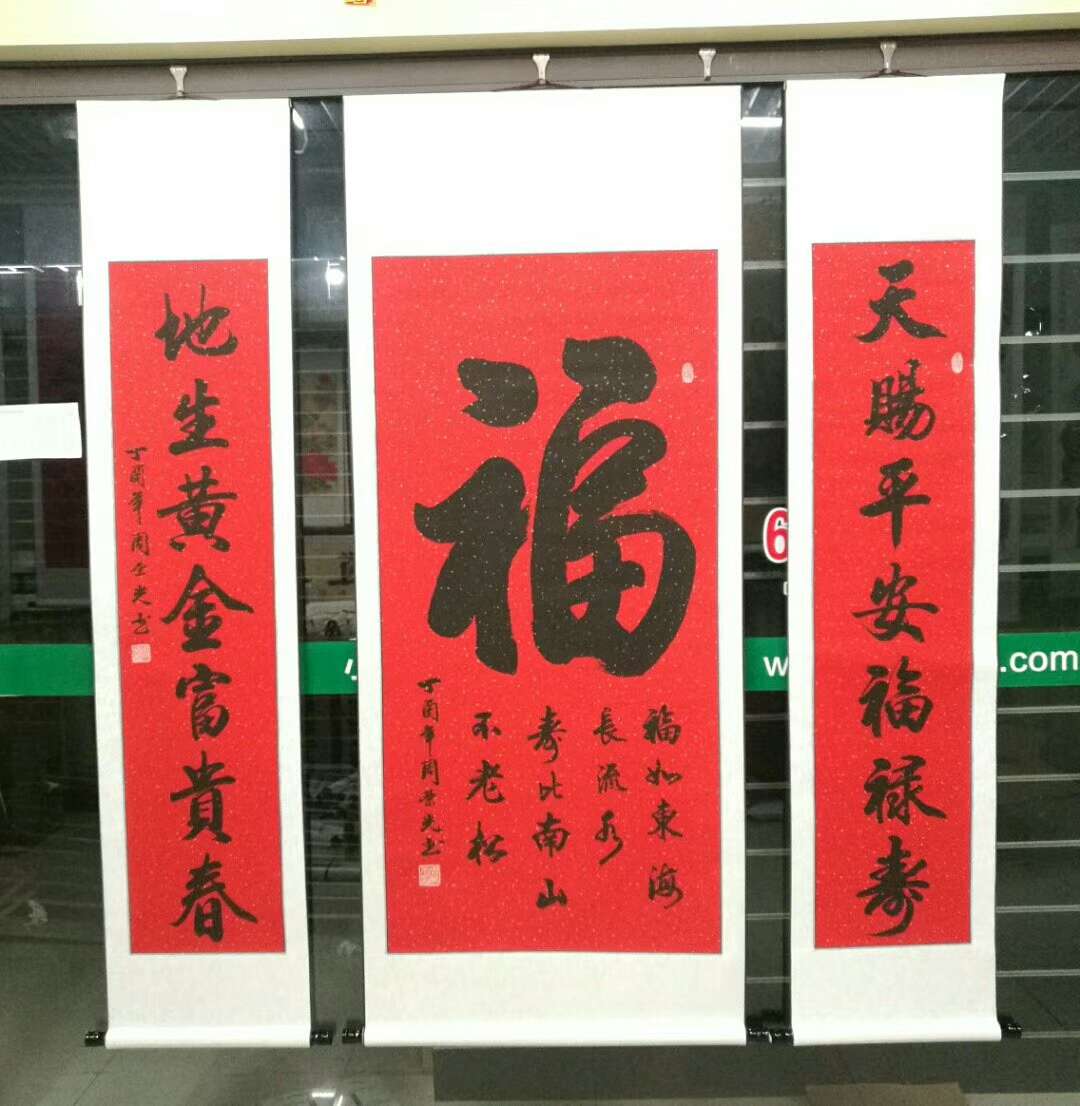 天賜平安福禄壽
福
福如東海
長流水
壽比南山
不老松
丁酉年周榮光书
地生黄金富貴春
丁酉年周全光书
6
w
.com